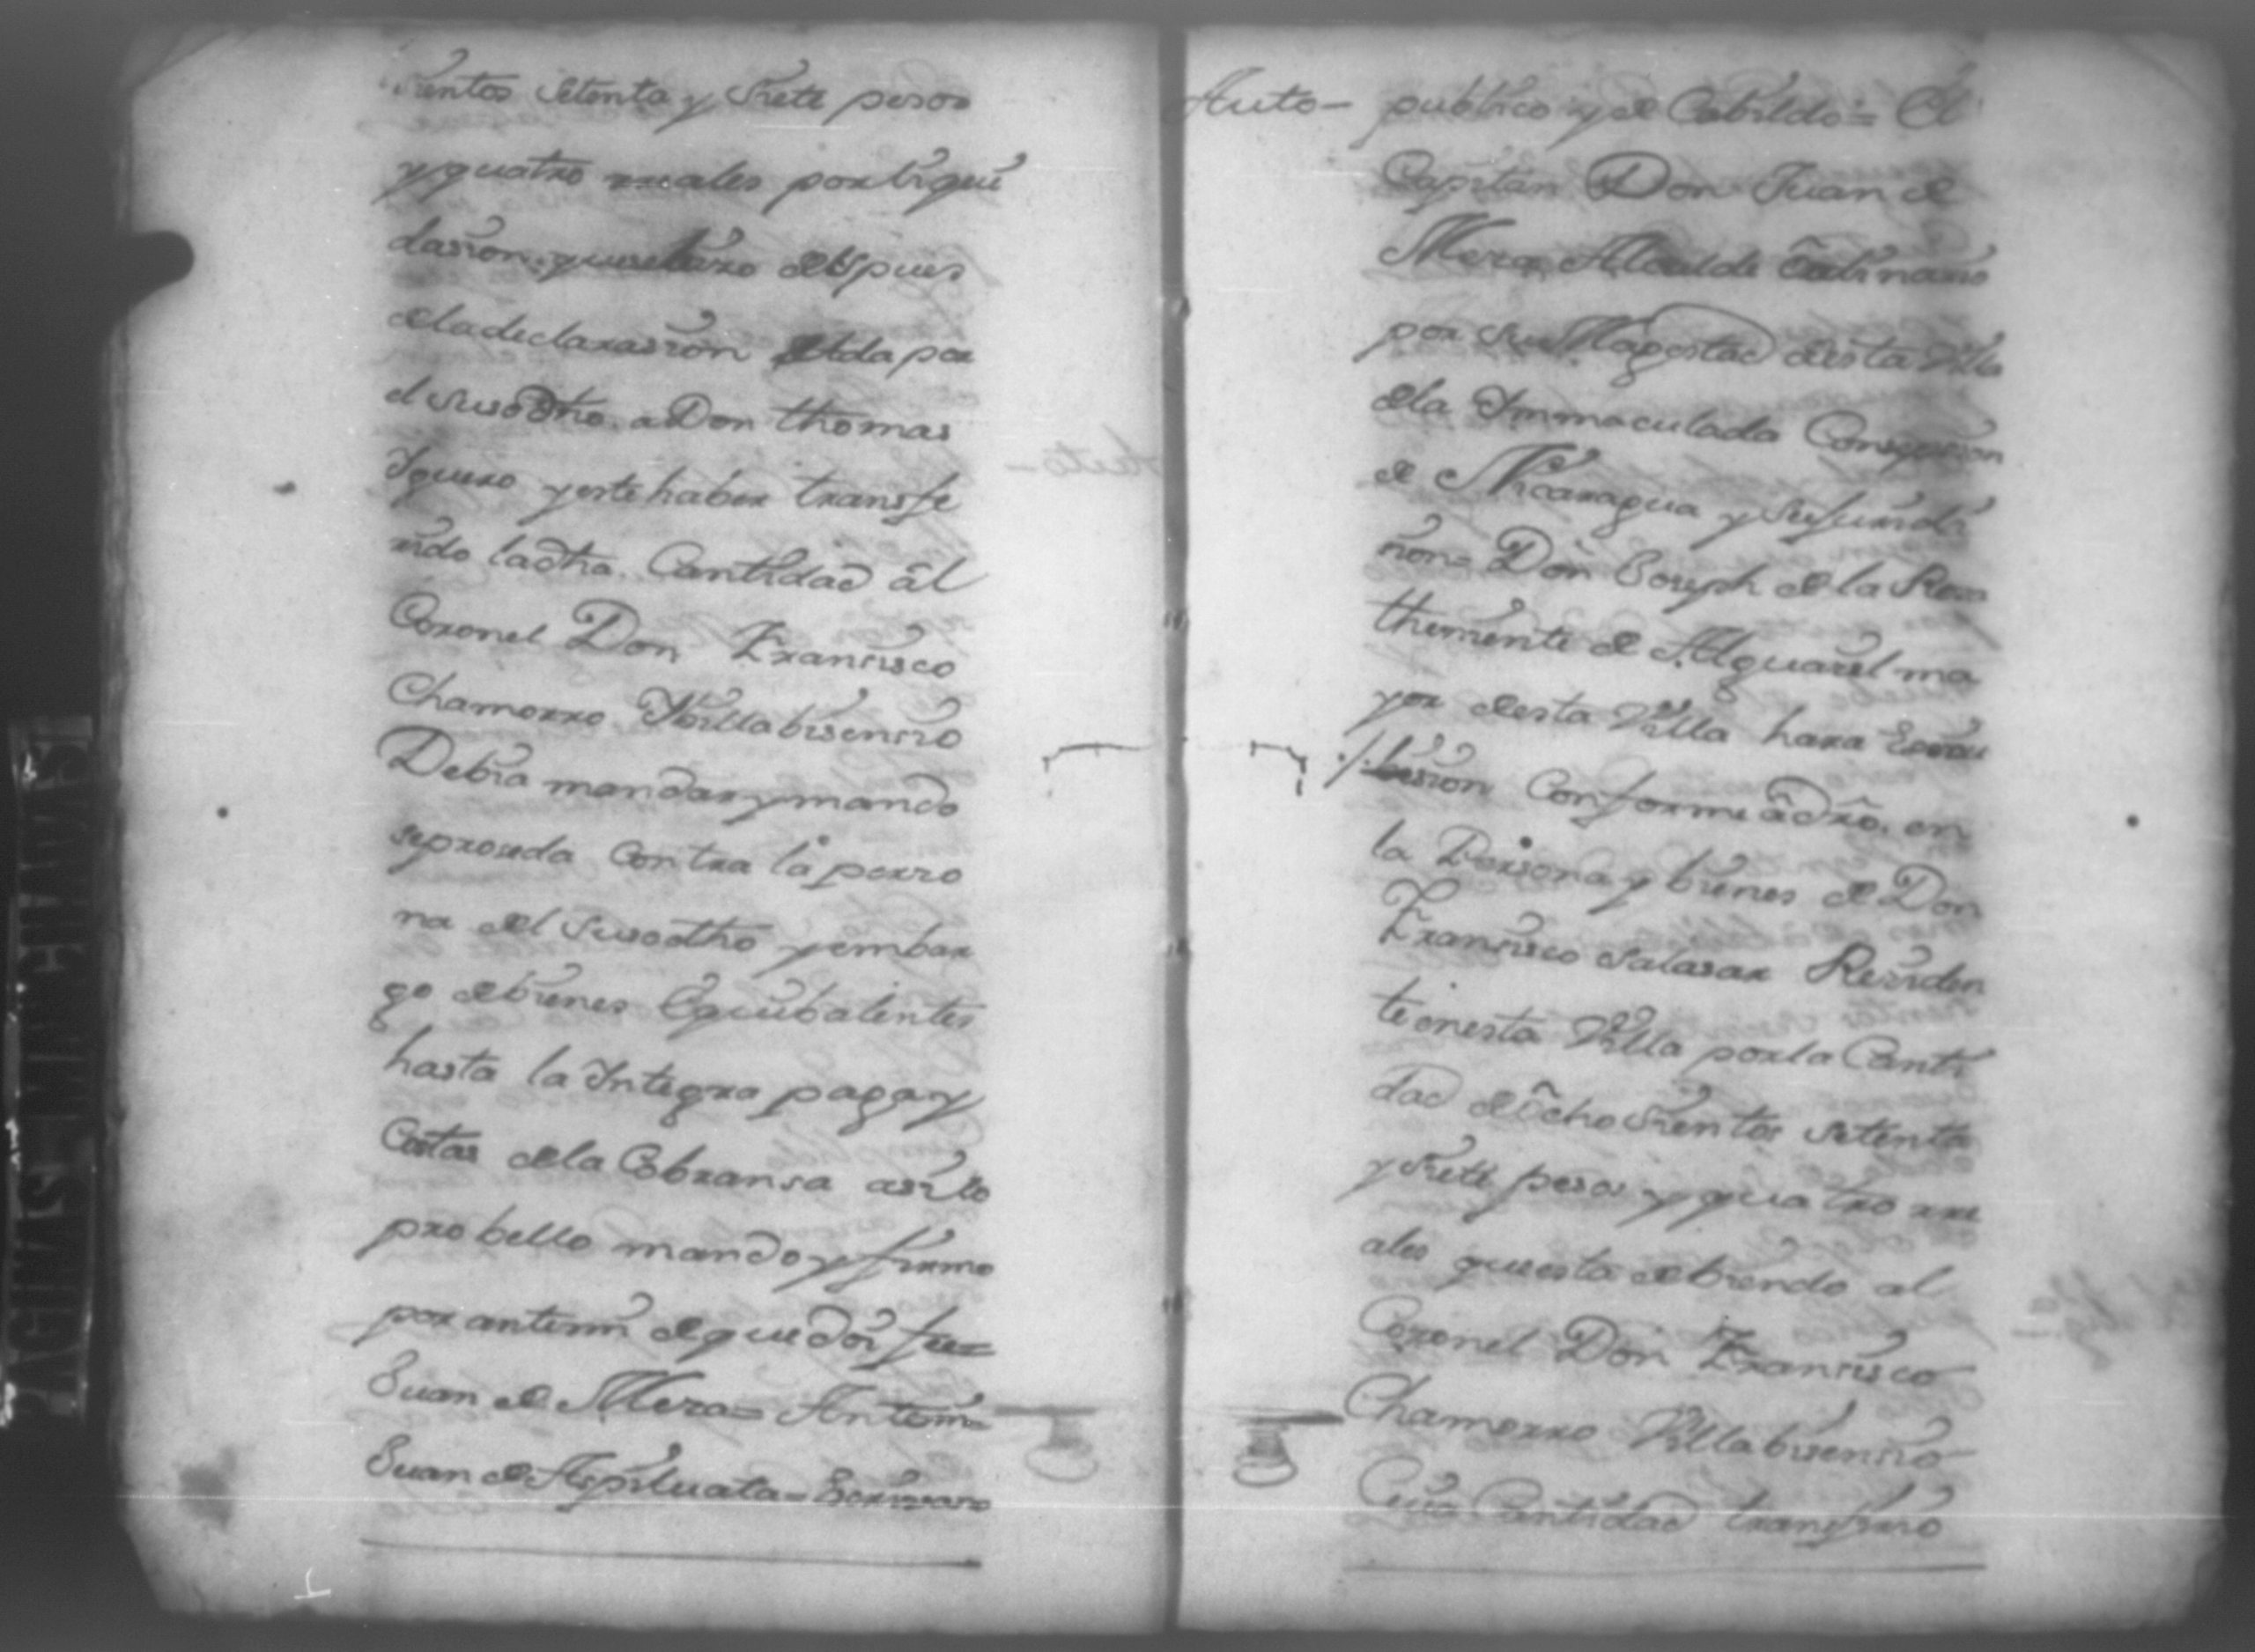 sientos setenta y siete pesos
y quatro rreales por liqui
dasion que se hizo despues
de la declarasion dada por
el susodho. a Don thomas
Yguero y este haber transfe
rido la dha. Cantidad âl
Coronel Don Fransisco
Chamorro Villabisensio
Debia mandar y mando
se proseda Contra la perso
na del susodho y embar
go de bienes Equibalentes
hasta la Integra paga y
Costas de la Cobransa asi lo
probello mando y firmo
por antemi de que doi fee=
Juan de Mera= Antemi=
Juan de Apiluata= Escrivano
Auto- publico y de Cabildo= El
Capitan Don Juan de
Mera Alcalde ôrdinario
por su Magestad desta Villa
de la Immaculada Consepsion
de Nicaragua y su Jurisdi
sion= Don Joseph de la Rosa
theniente de Alguasil ma
yor desta Villa hara Execu
sion Conforme â dro. en
la Persona y bienes de Don
Fransisco Salasar Residen
te en esta Villa por la Canti
dad de ôcho sientos setenta
y siete pesos y quatro rre
ales que esta debiendo al
Coronel Don Fransisco
Chamorro Villabisensio
Cuia Cantidad transfirio